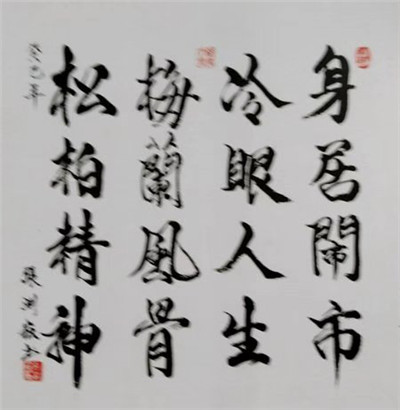 身居鬧市
冷眼人生
梅蘭風骨
松柏精神
癸巳年